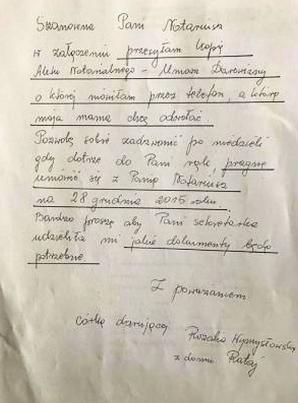 Szanowna Pani Notariusz
w załączeniu przesyłam kopię
Aktu Notarialnego - Umowa Darowizny
o której mówiłam przez telefon a którą
moja mama chce odwołać.
Pozwolę sobie zadzwonić po niedzieli
gdy dotrze do Pani ręki pragnę
umówić się z Panią Notariusz
na 28 grudnia 2015 roku.
Bardzo proszę aby Pani sekretarka
udzieliła mi jakie dokumenty będą
potrzebne.
Z poważaniem
córka darującej Rozalia
z domu Rataj